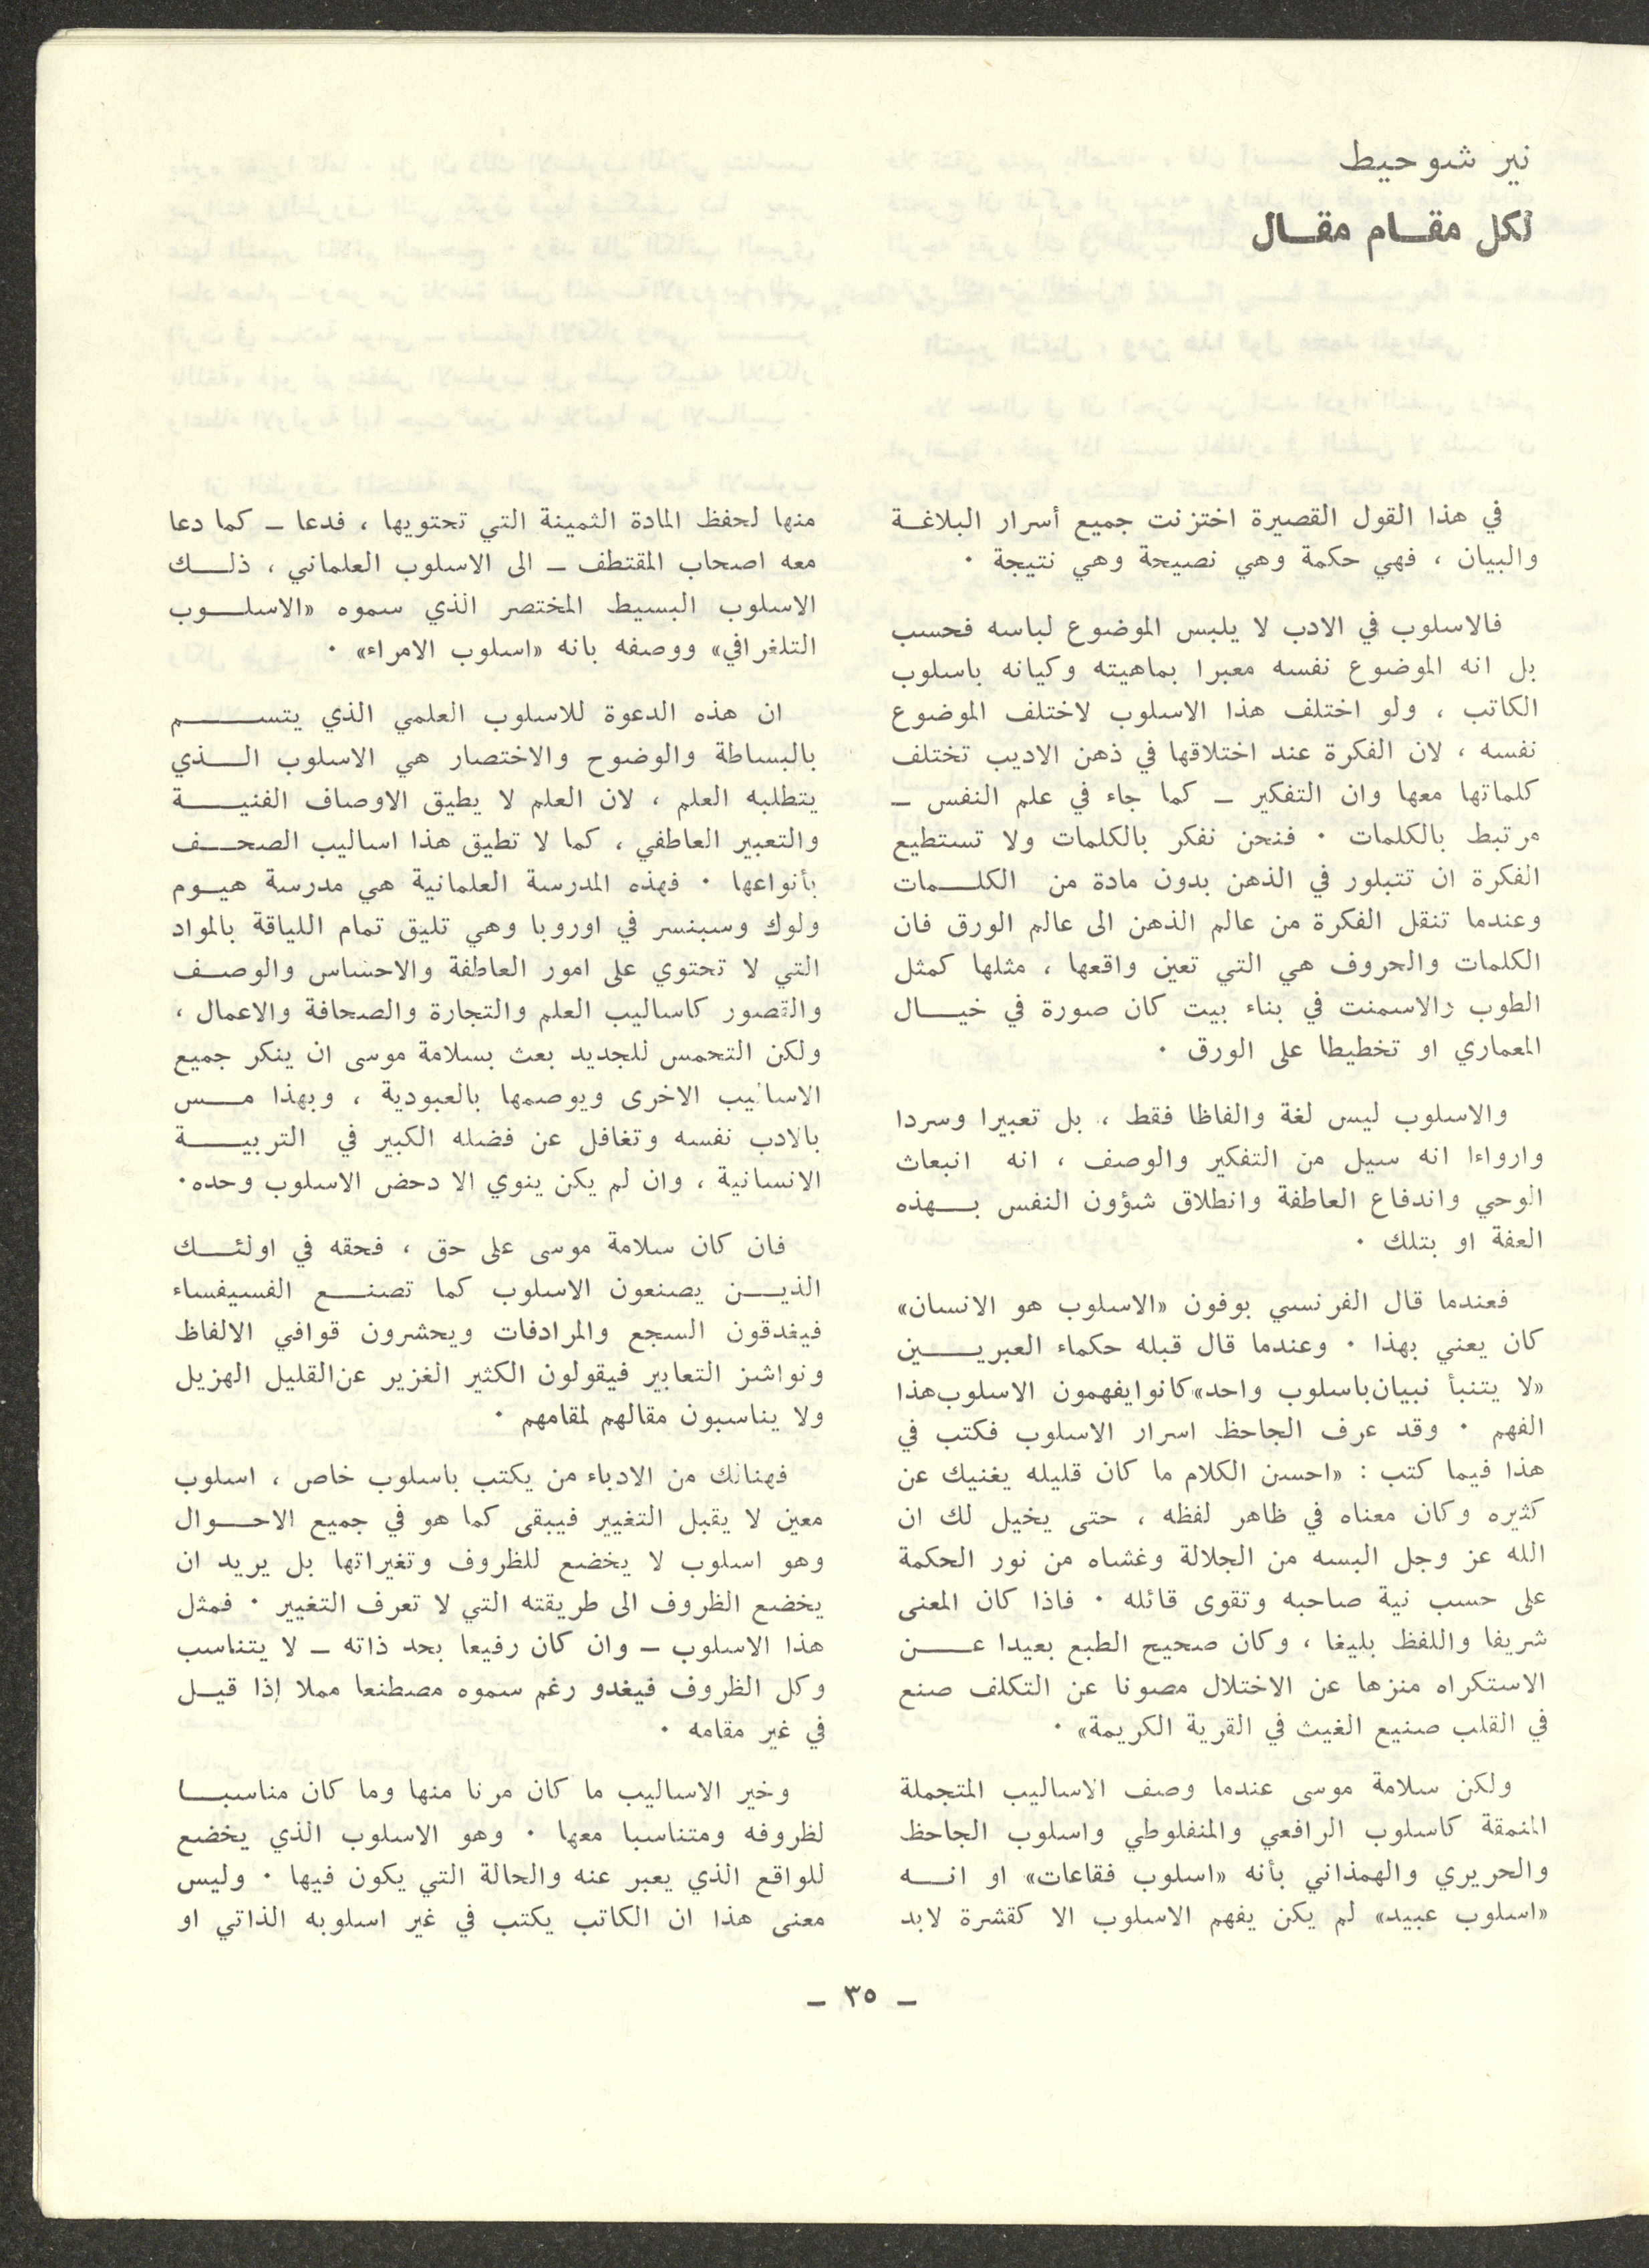 نير شوحيط
لكل مقام مقال
في هذا القول القصيرة اختزنت جميع أسرار البلاغة
والبيان ، فهي حكمة وهي نصيحة وهي نتيجة .
فالاسلوب في الادب لا يلبس الموضوع لباسه فحسب
بل انه الموضوع نفسه معبرا بماهيته وكيانه باسلوب
الكاتب ، ولو اختلف هذا الاسلوب لاختلف الموضوع
نفسه ، لان الفكرة عند اختلاقها في ذهن الاديب تختلف
كلماتها معها وان التفكير – كما جاء في علم النفس –
مرتبط بالكلمات . فنحن نفكر بالكلمات ولا تستطيع
الفكرة ان تتبلور في الذهن بدون مادة من الكلمات
وعندما تنقل الفكرة من عالم الذهن الى عالم الورق فان
الكلمات والحروف هي التي تعين واقعها ، مثلها كمثل
الطوب والاسمنت في بناء بيت كان صورة في خيال
المعماري او تخطيطا على الورق .
والاسلوب ليس لغة والفاظا فقط ، بل تعبيرا وسردا
وارواءا انه سيل من التفكير والوصف ، انه انبعاث
الوحي واندفاع العاطفة وانطلاق شؤون النفس بهذه
العفة او بتلك .
فعندما قال الفرنسي بوفون «الاسلوب هو الانسان»
كان يعني بهذا . وعندما قال قبله حكماء العبريين
«لا يتنبأ نبيان باسلوب واحد» كانوا يفهمون الاسلوب هذا
الفهم . وقد عرف الجاحظ اسرار الاسلوب فكتب في
هذا فيما كتب : «احسن الكلام ما كان قليله يغنيك عن
كثيره وكان معناه في ظاهر لفظه ، حتى يخيل لك ان
الله عز وجل البسه من الجلالة وغشاه من نور الحكمة
على حسب نية صاحبه وتقوى قائله . فاذا كان المعنى
شريفا واللفظ بليغا ، وكان صحيح الطبع بعيدا عن
الاستكراه منزها عن الاختلال مصونا عن التكلف صنع
في القلب صنيع الغيث في القرية الكريمة» .
ولكن سلامة موسى عندما وصف الاساليب المتجملة
المنمقة كاسلوب الرافعي والمنفلوطي واسلوب الجاحظ
والحريري والهمذاني بأنه «اسلوب فقاعات» او انه
«اسلوب عبيد» لم يكن يفهم الاسلوب الا كقشرة لابد
منها لحفظ المادة الثمينة التي تحتويها ، فدعا – كما دعا
معه اصحاب المقتطف – الى الاسلوب العلماني ، ذلك
الاسلوب البسيط المختصر الذي سموه «الاسلوب
التلغرافي» ووصفه بانه «اسلوب الامراء» .
ان هذه الدعوة للاسلوب العلمي الذي يتسم
بالبساطة والوضوح والاختصار هي الاسلوب الذي
يتطلبه العلم ، لان العلم لا يطيق الاوصاف الفنية
والتعبير العاطفي ، كما لا تطيق هذا اساليب الصحف
بأنواعها . فهذه المدرسة العلمانية هي مدرسة هيوم
ولوك وسبنسر في اوروبا وهي تليق تمام اللياقة بالمواد
التي لا تحتوي على امور العاطفة والاحساس والوصف
والتصور كاساليب العلم والتجارة والصحافة والاعمال ،
ولكن التحمس للجديد بعث بسلامة موسى ان ينكر جميع
الاساليب الاخرى ويوصمها بالعبودية ، وبهذا مس
بالادب نفسه وتغافل عن فضله الكبير في التربية
الانسانية ، وان لم يكن ينوي الا دحض الاسلوب وحده.
فان كان سلامة موسى على حق ، فحقه في اولئك
الذين يصنعون الاسلوب كما تصنع الفسيفساء
فيغدقون السجع والمرادفات ويحشرون قوافي الالفاظ
ونواشز التعابير فيقولون الكثير الغزير عن القليل الهزيل
ولا يناسبون مقالهم لمقامهم .
فهنالك من الادباء من يكتب باسلوب خاص ، اسلوب
معين لا يقبل التغيير فيبقى كما هو في جميع الاحوال
وهو اسلوب لا يخضع للظروف وتغيراتها بل يريد ان
يخضع الظروف الى طريقته التي لا تعرف التغيير . فمثل
هذا الاسلوب – وان كان رفيعا بحد ذاته – لا يتناسب
وكل الظروف فيغدو رغم سموه مصطنعا مملا إذا قيل
في غير مقامه .
وخير الاساليب ما كان مرنا منها وما كان مناسبا
لظروفه ومتناسبا معها . وهو الاسلوب الذي يخضع
للواقع الذي يعبر عنه والحالة التي يكون فيها . وليس
معنى هذا ان الكاتب يكتب في غير اسلوبه الذاتي او
– ٣٥ –